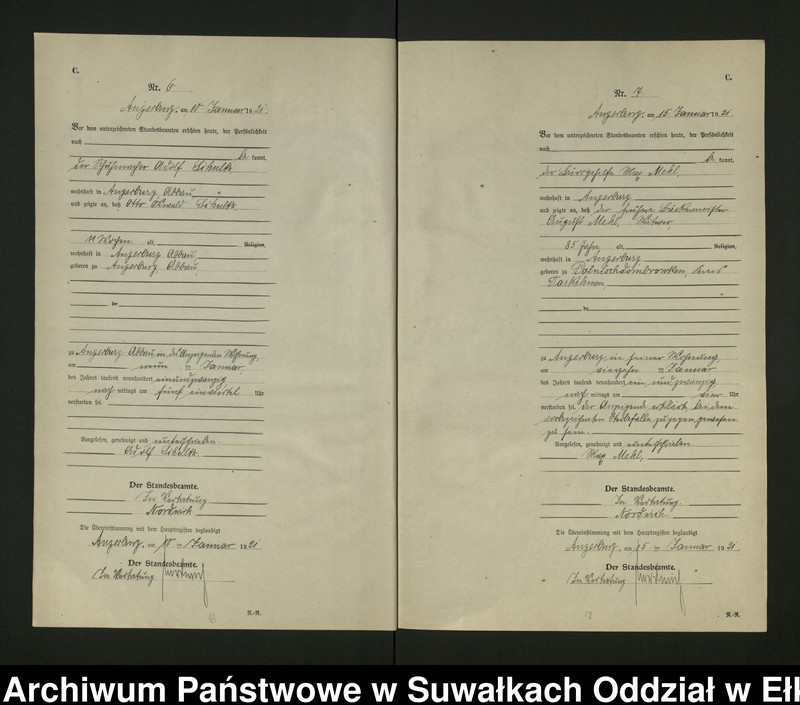 C.
Nr. 6
Angerburg, am 10 Januar 1921.
Vor dem unterzeichneten Standesbeamten erschien heute, der Persönlichkeit
nach
be kannt,
der Schuhmacher Adolf
wohnhaft in Angerburg Abbau
und zeigte an, daß Otto Oswald
11 Wochen alt, Religion,
wohnhaft in Angerburg Abbau,
geboren zu Angerburg Abbau,
der
zu Angerburg Abbau in des Anzeigenden Wohnung,
am neun ten Januar
des Jahres tausend neunhundert einundzwanzig
nach mittags um fünf einviertel Uhr
verstorben sei.
Vorgelesen, genehmigt und unterschrieben.
Adolf
Der Standesbeamte.
In Vertretung
Nordwich
Die Übereinstimmung mit dem Hauptregister beglaubigt
Angerburg, am 10 ten Januar 1921
Der Standesbeamte.
In Vertretung
N.-R.
6
C.
Nr. 7
Angerburg, am 15 Januar 1921.
Vor dem unterzeichneten Standesbeamten erschien heute, der Persönlichkeit
nach
be kannt,
der Bürogehilfe Max Mehl,
wohnhaft in Angerburg
und zeigte an, daß der frühere Bäckermeister
August Mehl, Witwer
85 Jahr, alt, Religion,
wohnhaft in Angerburg
geboren zu Polnischdombrowken, Kreis
Darkehmen,
der
zu Angerburg in seiner Wohnung,
am vierzehn ten Januar
des Jahres tausend neunhundert ein und zwanzig
nach mittags um vier Uhr
verstorben sei. Der Anzeigende erklärt bei dem
vorbezeichneten Sterbefalle zugegen gewesen
zu sein.
Vorgelesen, genehmigt und unterschrieben
Max Mehl.
Der Standesbeamte.
In Vertretung.
Nordwich.
Die Übereinstimmung mit dem Hauptregister beglaubigt
Angerburg, am 15 ten Januar 1921.
Der Standesbeamte.
In Vertretung
N.-R.
7
Archiwum Państwowe w Suwałkach Oddział w Ełk